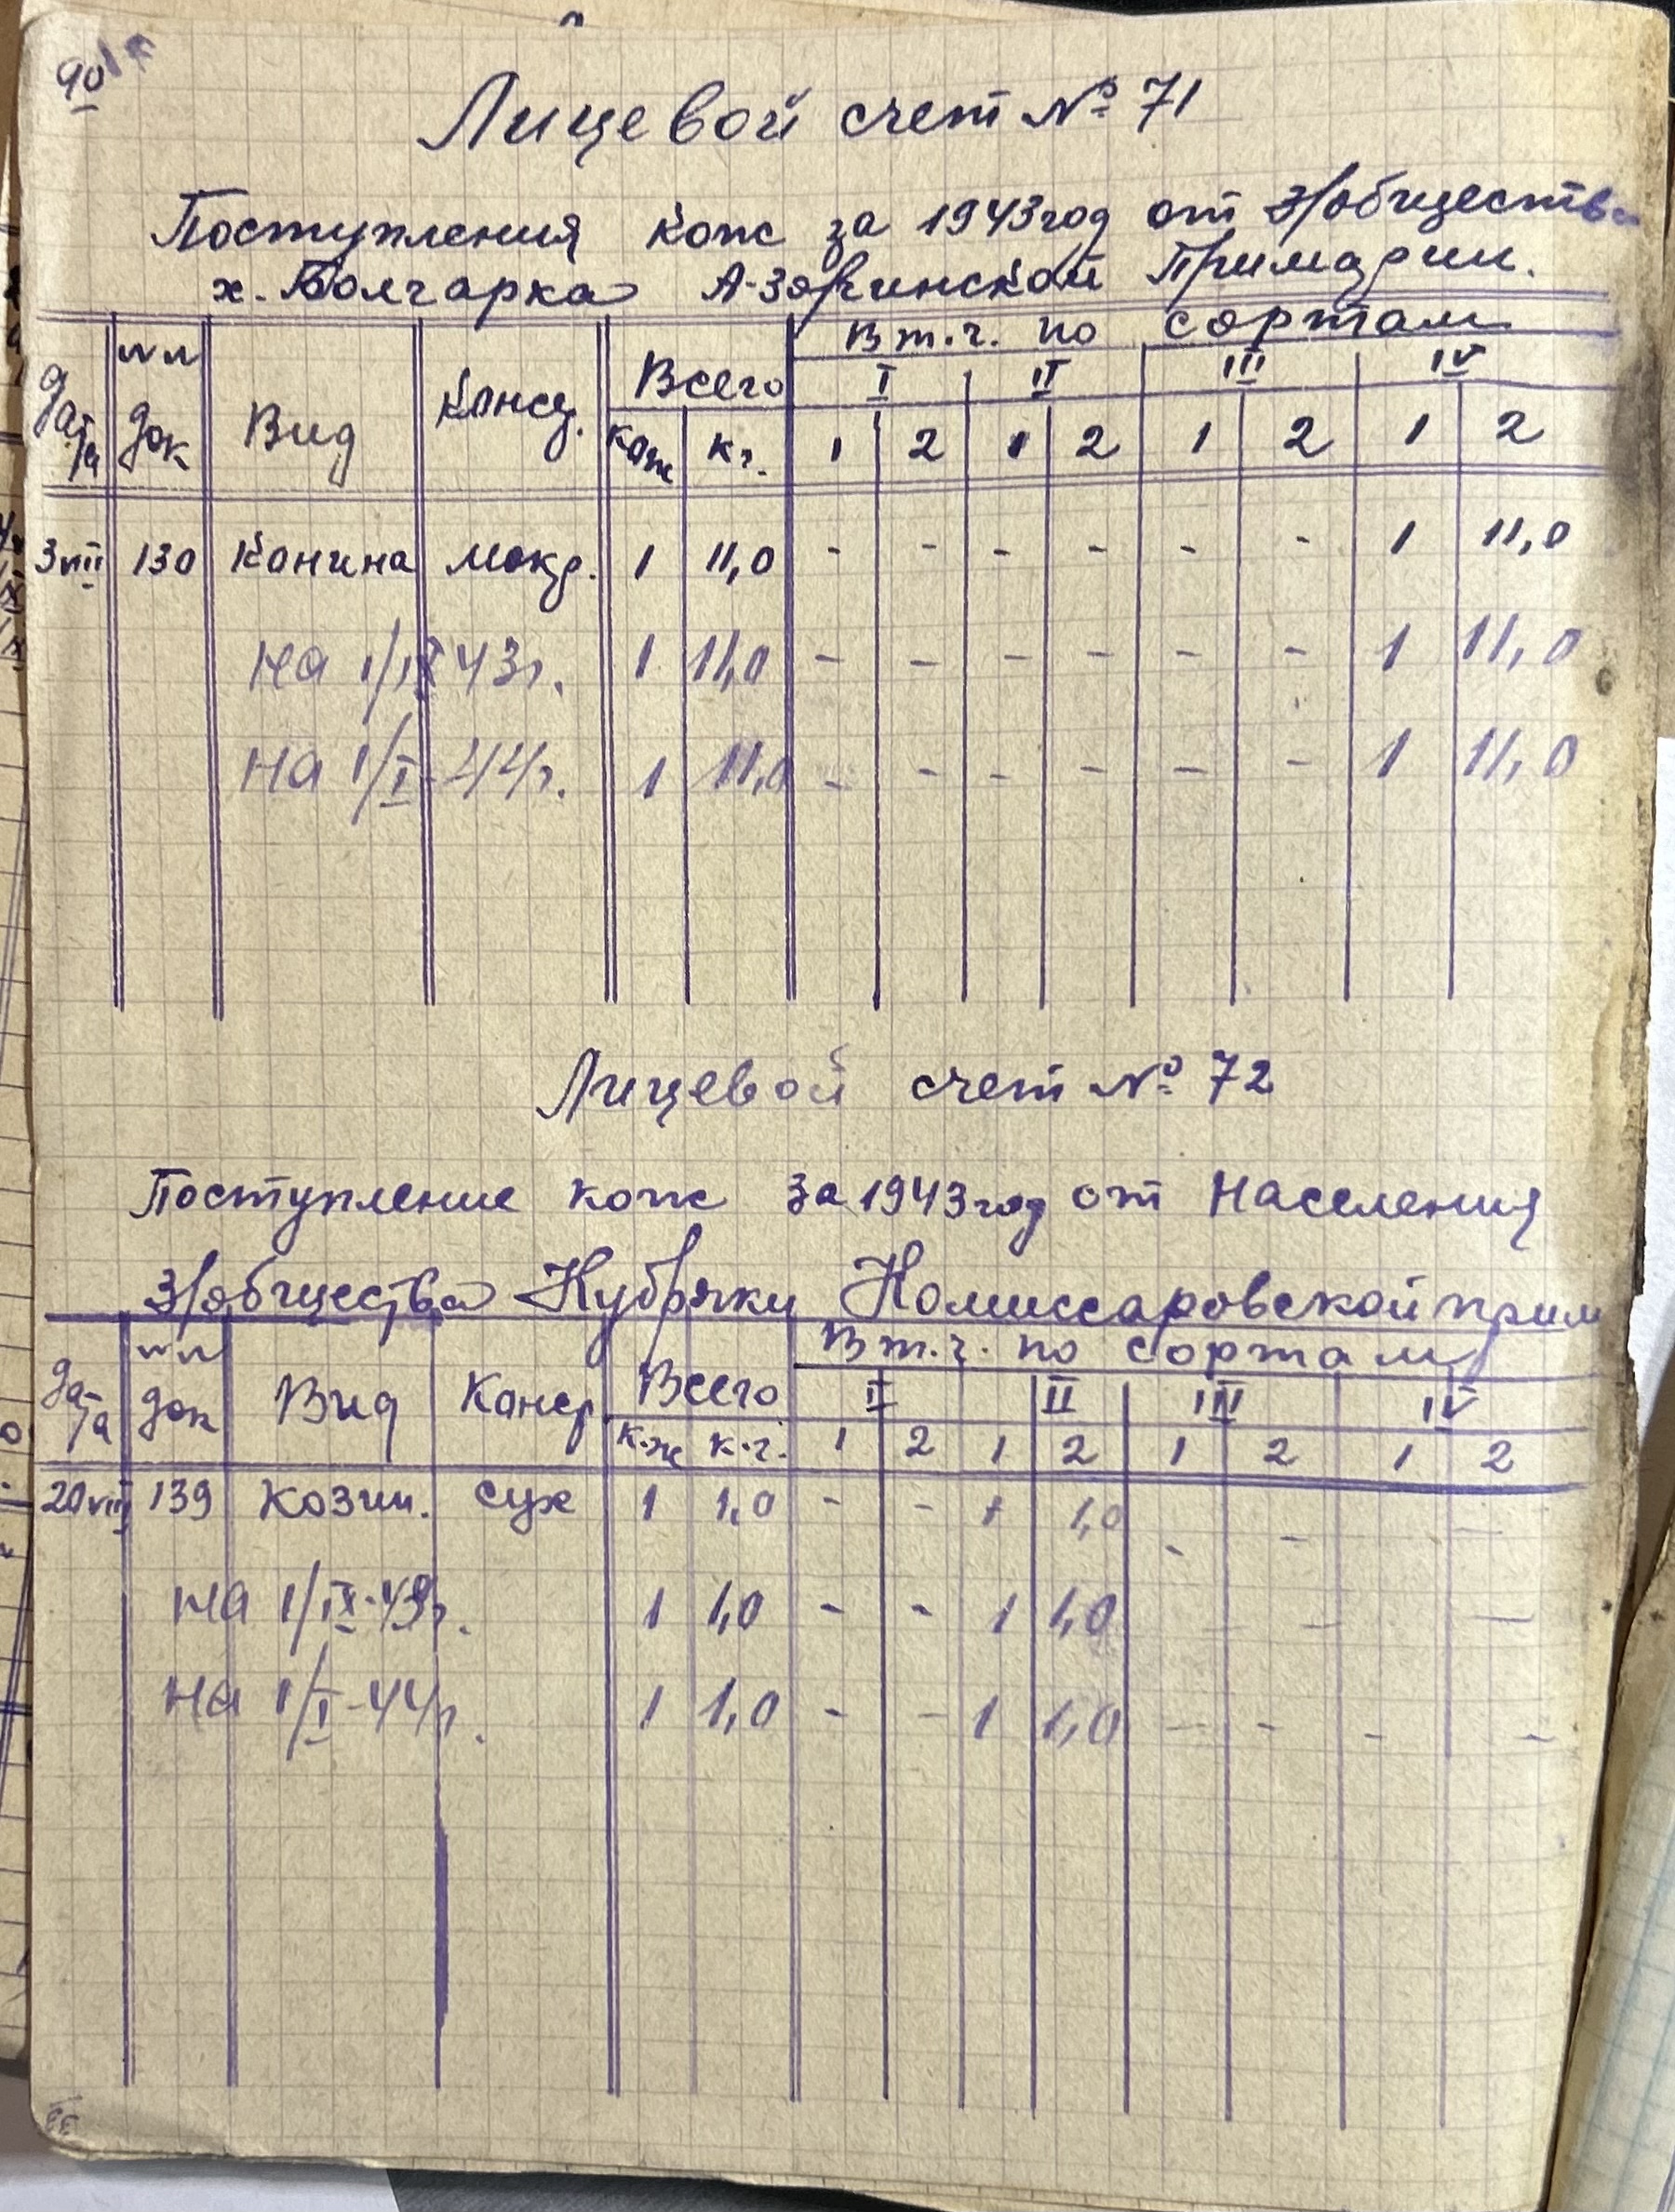 90
Лицевой счет № 71
Поступления кож за 1943 год от З/общества
х. Болгарка А- Примарии.
Дата №№ док Вид Консер. Всего В т.ч. по сортам
I II III IV
кож кг. 1 2 1 2 1 2 1 2
3 VIII 130 Конина мокр. 1 11,0 - - - - - - 1 11,0
на 1/IX 43г. 1 11,0 - - - - - - 1 11,0
на 1/I-44г. 1 11,0 - - - - - - 1 11,0
Лицевой счет № 72
Поступление кож за 1943 год от Населения
З/общества Кубряки Комиссаровской прим
Дата №№ док Вид Консер Всего В т.ч. по сортам
I II III IV
к-ж к-г. 1 2 1 2 1 2 1 2
20 VIII 139 Козин. сух 1 1,0 - - 1 1,0 - - - -
на 1/IX-43г. 1 1,0 - - 1 1,0 - - - -
на 1/I-44г. 1 1,0 - - 1 1,0 - - - -